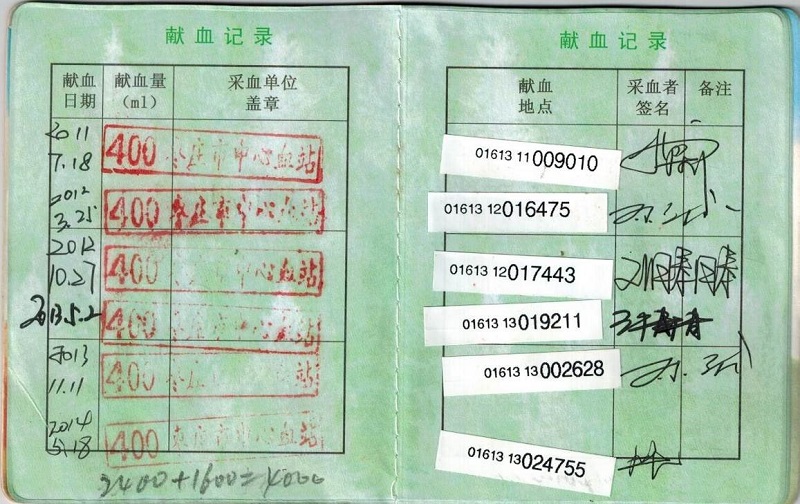 献血记录
献血日期
献血量(ml)
采血单位盖章
2011 7.18
400 枣庄市中心血站
2012 3.25
400 枣庄市中心血站
2012 10.27
400 枣庄市中心血站
2013 5.2
400 枣庄市中心血站
2013 11.11
400 枣庄市中心血站
2014 5.18
400 枣庄市中心血站
2400+1600=4000
献血记录
献血地点
采血者签名
备注
01613 11 009010
01613 12 016475
01613 12 017443
01613 13 019211
01613 13 002628
01613 13 024755